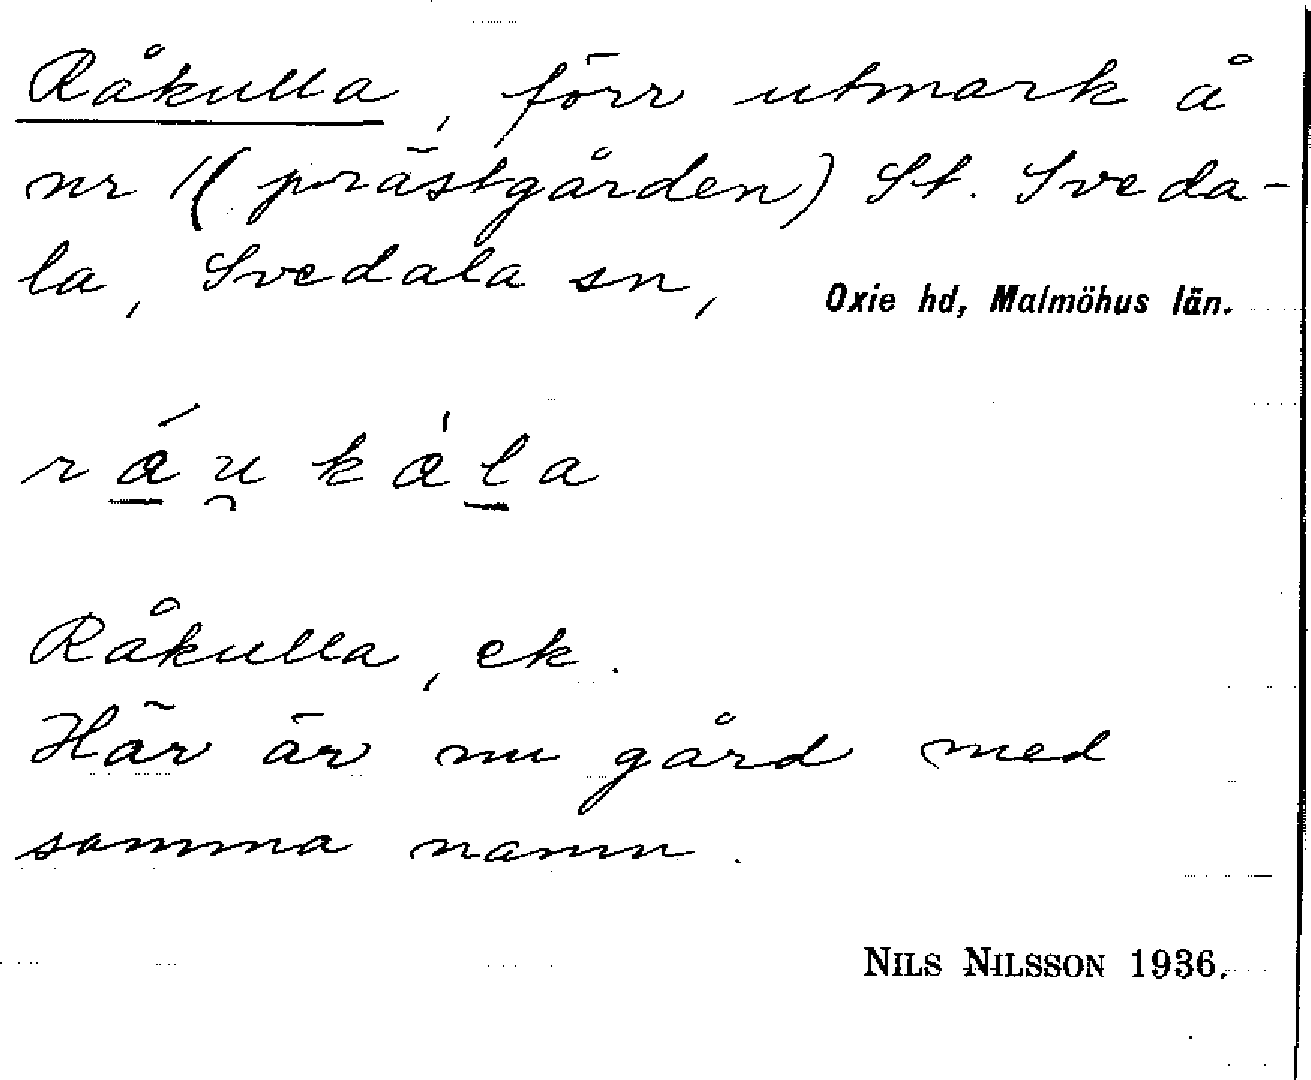 Råkulla, förr utmark å
nr 1 (prästgården) St. Sveda-
la, Svedala sn, Oxie hd, Malmöhus län.
Råkulla, ek.
Här är nu gård med
samma namn.
NILS NILSSON 1936.